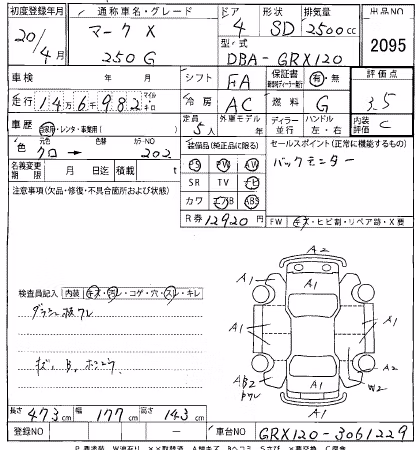 初度登録年月 通称車名・グレード ドア 形状 排気量 出品NO
20/4月 マークX 250G 4 SD 2500cc 2095
型式 DBA-GRX120
車検 年 月 シフト FA 保証書 有・無 評価点
走行 14万6千982 マイル キロ 冷房 AC 燃料 G 3.5
車歴 自家用・レンタ・事業用( ) 定員 5人 外車モデル ディーラー 並行 ハンドル 左・右 内装評価 C
色 元色 クロ → 色替 カラーNO 202 装備品(純正品に限る) セールスポイント(正常に機能するもの)
PS PW SW バックモニター
名義変更期限 月 日迄 積載 t SR TV ナビ
注意事項(欠品・修復・不具合箇所および状態) カワ エアB ABS
R券 12920円 FW キズ・ヒビ割・リペア跡・X要
検査員記入 内装 キズ・汚レ・コゲ・穴・スレ・キレ
ダッシュ
キズ、B、
A2
A1 A1 A1
A1 A1 A1
A1
AB2 A2 W2
A1
長さ 473cm 幅 177cm 高さ 143cm
登録NO 車台NO GRX120-3061229